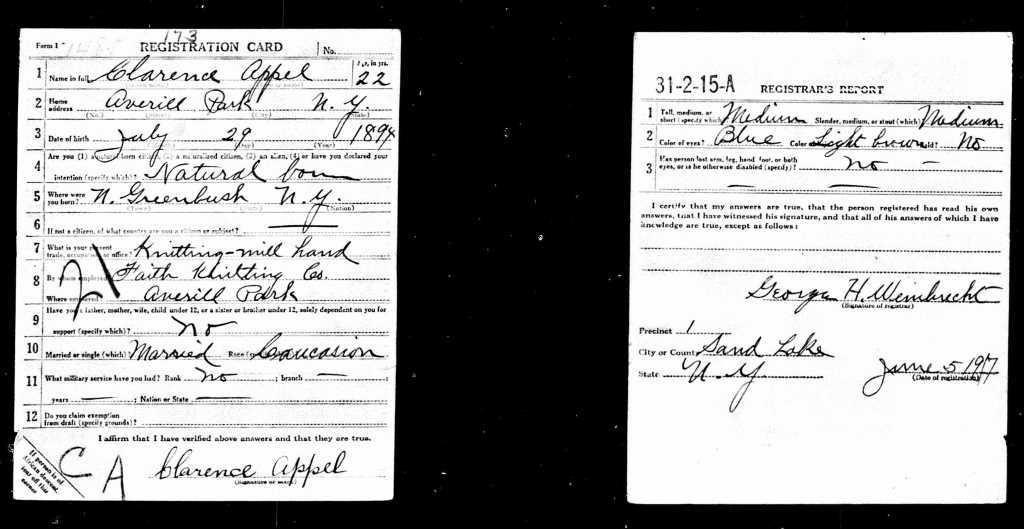 173
Form 1 REGISTRATION CARD No.
1 Name in full Clarence Appel Age, in yrs. 22
2 Home address Averill Park N.Y.
(No.) (Street) (City) (State)
3 Date of birth July 29 1894
(Month) (Day) (Year)
4 Are you (1) a natural-born citizen, (2) a naturalized citizen, (3) an alien, (4) or have you declared your
intention (specify which)? Natural born
5 Where were you born? N. Greenbush N.Y.
(Town) (State) (Nation)
6 If not a citizen, of what country are you a citizen or subject? —
7 What is your present trade, occupation, or office? Knitting-mill hand
21
8 By whom employed? Faith Knitting Co.
Where employed? Averill Park
9 Have you a father, mother, wife, child under 12, or a sister or brother under 12, solely dependent on you for
support (specify which)? No
10 Married or single (which)? Married Race (specify which)? Caucasion
11 What military service have you had? Rank No ; branch — ;
years — ; Nation or State —
12 Do you claim exemption from draft (specify grounds)?
I affirm that I have verified above answers and that they are true.
If person is of African descent, tear off this corner
C A
Clarence Appel
(Signature or mark)
31-2-15-A REGISTRAR'S REPORT
1 Tall, medium, or short (specify which)? Medium Slender, medium, or stout (which)? Medium
2 Color of eyes? Blue Color of hair? Light brown Bald? No
3 Has person lost arm, leg, hand, foot, or both
eyes, or is he otherwise disabled (specify)? No —
— —
I certify that my answers are true, that the person registered has read his own
answers, that I have witnessed his signature, and that all of his answers of which I have
knowledge are true, except as follows:
George H. Weinbrecht
(Signature of registrar)
Precinct 1
City or County Sand Lake
State N.Y. June 5 1917
(Date of registration)